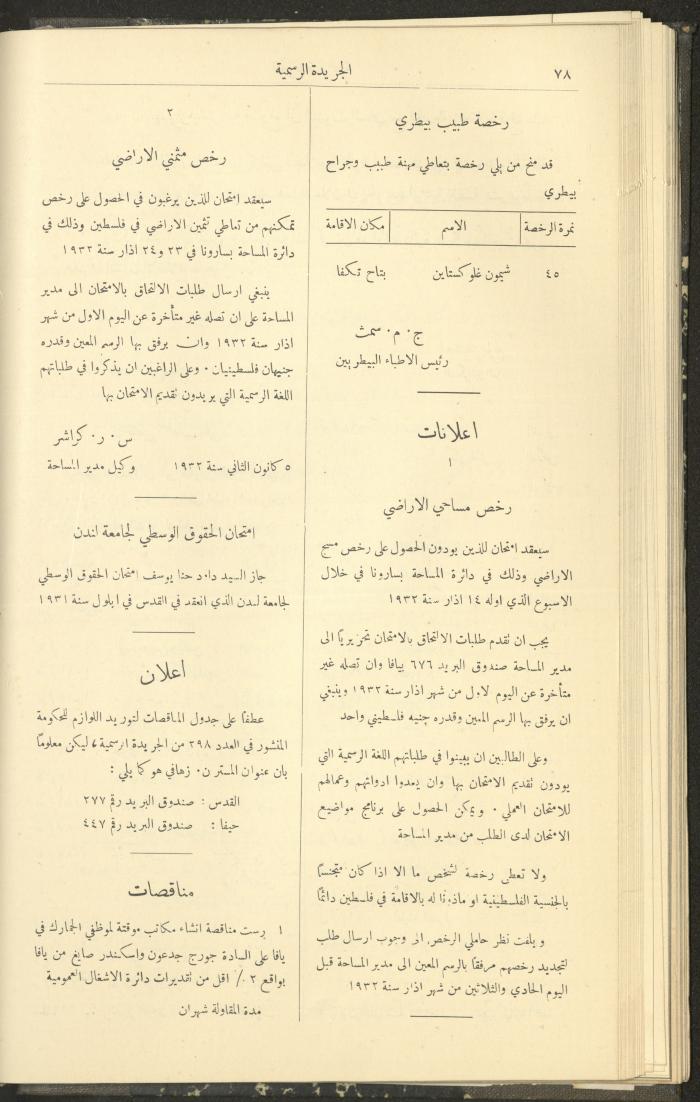 ٧٨
الجريدة الرسمية
رخصة طبيب بيطري
قد منح من يلي رخصة بتعاطي مهنة طبيب وجراح
بيطري
نمرة الرخصة | الاسم | مكان الاقامة
٤٥ شيمون غلوكستاين بتاح تكفا
ج٠ م٠ سمث
رئيس الاطباء البيطريين
اعلانات
١
رخص مساحي الاراضي
سيعقد امتحان للذين يودون الحصول على رخص مسح
الاراضي وذلك في دائرة المساحة بسارونا في خلال
الاسبوع الذي اوله ١٤ اذار سنة ١٩٣٢
يجب ان تقدم طلبات الالتحاق بالامتحان تحريريًا الى
مدير المساحة صندوق البريد ٦٧٦ بيافا وان تصله غير
متأخرة عن اليوم الاول من شهر اذار سنة ١٩٣٢ وينبغي
ان يرفق بها الرسم المعين وقدره جنيه فلسطيني واحد
وعلى الطالبين ان يبينوا في طلباتهم اللغة الرسمية التي
يودون تقديم الامتحان بها وان يعدوا ادواتهم وعمالهم
للامتحان العملي ٠ ويمكن الحصول على برنامج مواضيع
الامتحان لدى الطلب من مدير المساحة
ولا تعطى رخصة لشخص ما الا اذا كان متجنسًا
بالجنسية الفلسطينية او ماذونًا له بالاقامة في فلسطين دائمًا
ويلفت نظر حاملي الرخص الى وجوب ارسال طلب
لتجديد رخصهم مرفقًا بالرسم المعين الى مدير المساحة قبل
اليوم الحادي والثلاثين من شهر اذار سنة ١٩٣٢
٢
رخص مثمني الاراضي
سيعقد امتحان للذين يرغبون في الحصول على رخص
تمكنهم من تعاطي تثمين الاراضي في فلسطين وذلك في
دائرة المساحة بسارونا في ٢٣ و٢٤ اذار سنة ١٩٣٢
ينبغي ارسال طلبات الالتحاق بالامتحان الى مدير
المساحة على ان تصله غير متأخرة عن اليوم الاول من شهر
اذار سنة ١٩٣٢ وان يرفق بها الرسم المعين وقدره
جنيهان فلسطينيان ٠ وعلى الراغبين ان يذكروا في طلباتهم
اللغة الرسمية التي يريدون تقديم الامتحان بها
س٠ ر٠ كراشر
٥ كانون الثاني سنة ١٩٣٢ وكيل مدير المساحة
امتحان الحقوق الوسطي لجامعة لندن
جاز السيد داود حنا يوسف امتحان الحقوق الوسطي
لجامعة لندن الذي انعقد في القدس في ايلول سنة ١٩٣١
اعلان
عطفًا على جدول المناقصات لتوريد اللوازم للحكومة
المنشور في العدد ٢٩٨ من الجريدة الرسمية، ليكن معلومًا
بان عنوان المستر ن٠ زهافي هو كما يلي :
القدس : صندوق البريد رقم ٢٧٧
حيفا : صندوق البريد رقم ٤٤٧
مناقصات
١ رست مناقصة انشاء مكاتب موقتة لموظفي الجمارك في
يافا على السادة جورج جدعون واسكندر صايغ من يافا
بواقع ٢ ٪ اقل من تقديرات دائرة الاشغال العمومية
مدة المقاولة شهران